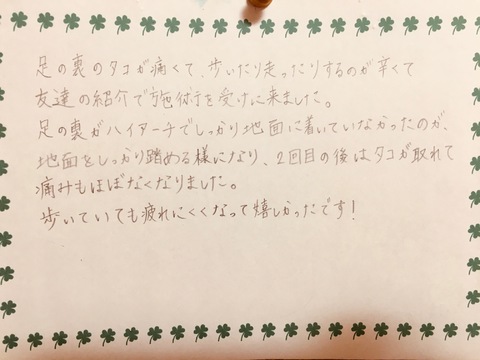 足の裏のタコが痛くて、歩いたり走ったりするのが辛くて
友達の紹介で施術を受けに来ました。
足の裏がハイアーチでしっかり地面に着いていなかったのが、
地面をしっかり踏める様になり、2回目の後はタコが取れて
痛みもほぼなくなりました。
歩いていても疲れにくくなって嬉しかったです!